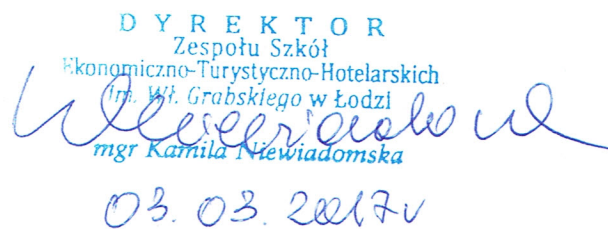 D Y R E K T O R
Zespołu Szkół
Ekonomiczno-Turystyczno-Hotelarskich
im. Wł. Grabskiego w Łodzi
mgr Kamila Niewiadomska
03. 03. 2017r